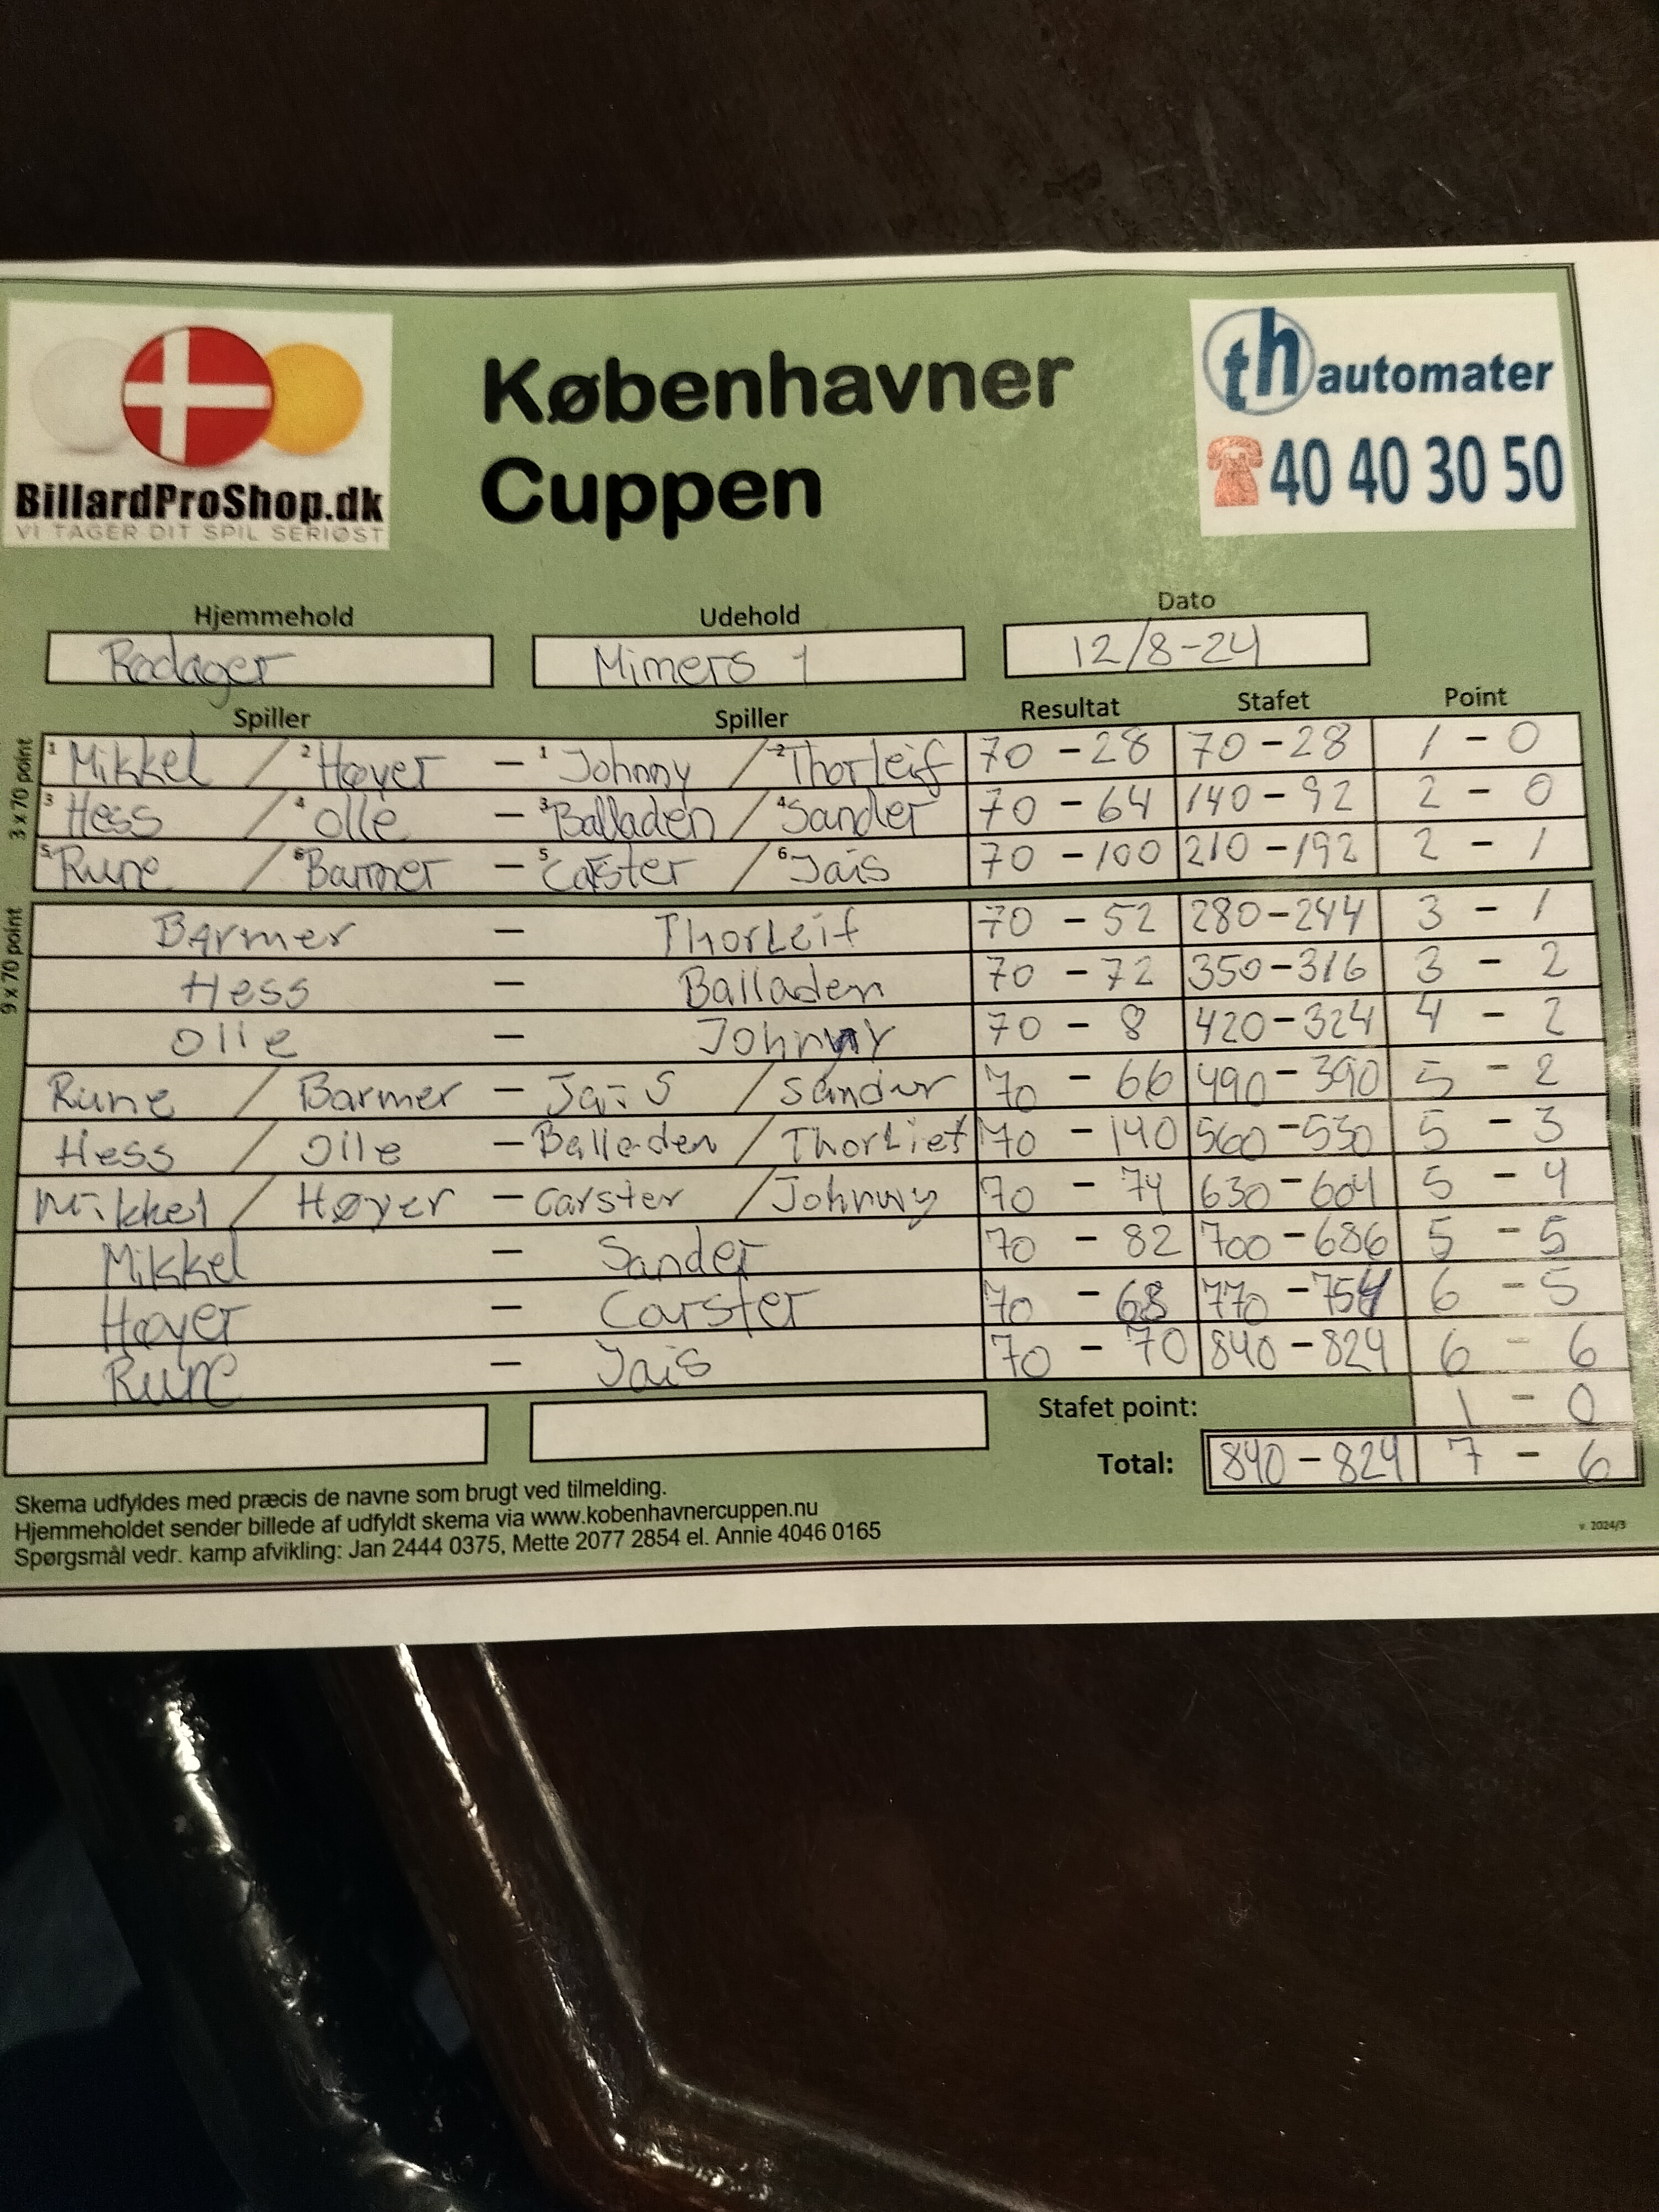 BillardProShop.dk
VI TAGER DIT SPIL SERIØST
Københavner
Cuppen
th automater
40 40 30 50
Hjemmehold Udehold Dato
Rødager Mimers 1 12/8-24
Spiller Spiller Resultat Stafet Point
3 x 70 point
1 Mikkel / 2 Høyer - 1 Johnny / 2 Thorleif 70 - 28 70 - 28 1 - 0
3 Hess / 4 Olle - 3 Balladen / 4 Sander 70 - 64 140 - 92 2 - 0
5 Rune / 6 Barmer - 5 Carster / 6 Jais 70 - 100 210 - 192 2 - 1
9 x 70 point
Barmer - Thorleif 70 - 52 280 - 244 3 - 1
Hess - Balladen 70 - 72 350 - 316 3 - 2
Olle - Johnny 70 - 8 420 - 324 4 - 2
Rune / Barmer - Jais / Sander 70 - 66 490 - 390 5 - 2
Hess / Olle - Balladen / Thorlief 70 - 140 560 - 530 5 - 3
Mikkel / Høyer - Carster / Johnny 70 - 74 630 - 604 5 - 4
Mikkel - Sander 70 - 82 700 - 686 5 - 5
Høyer - Carster 70 - 68 770 - 754 6 - 5
Rune - Jais 70 - 70 840 - 824 6 - 6
Stafet point: 1 - 0
Total: 840 - 824 7 - 6
Skema udfyldes med præcis de navne som brugt ved tilmelding.
Hjemmeholdet sender billede af udfyldt skema via www.kobenhavnercuppen.nu
Spørgsmål vedr. kamp afvikling: Jan 2444 0375, Mette 2077 2854 el. Annie 4046 0165
v. 2024/3